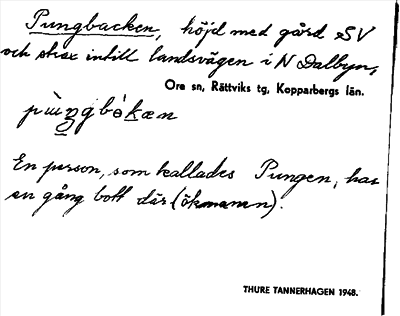 Pungbacken, höjd med gård SV
och strax intill landsvägen i N Dalbyn,
Ore sn, Rättviks tg, Kopparbergs län.
En person, som kallades Pungen, har
en gång bott där (öknamn).
THURE TANNERHAGEN 1948.